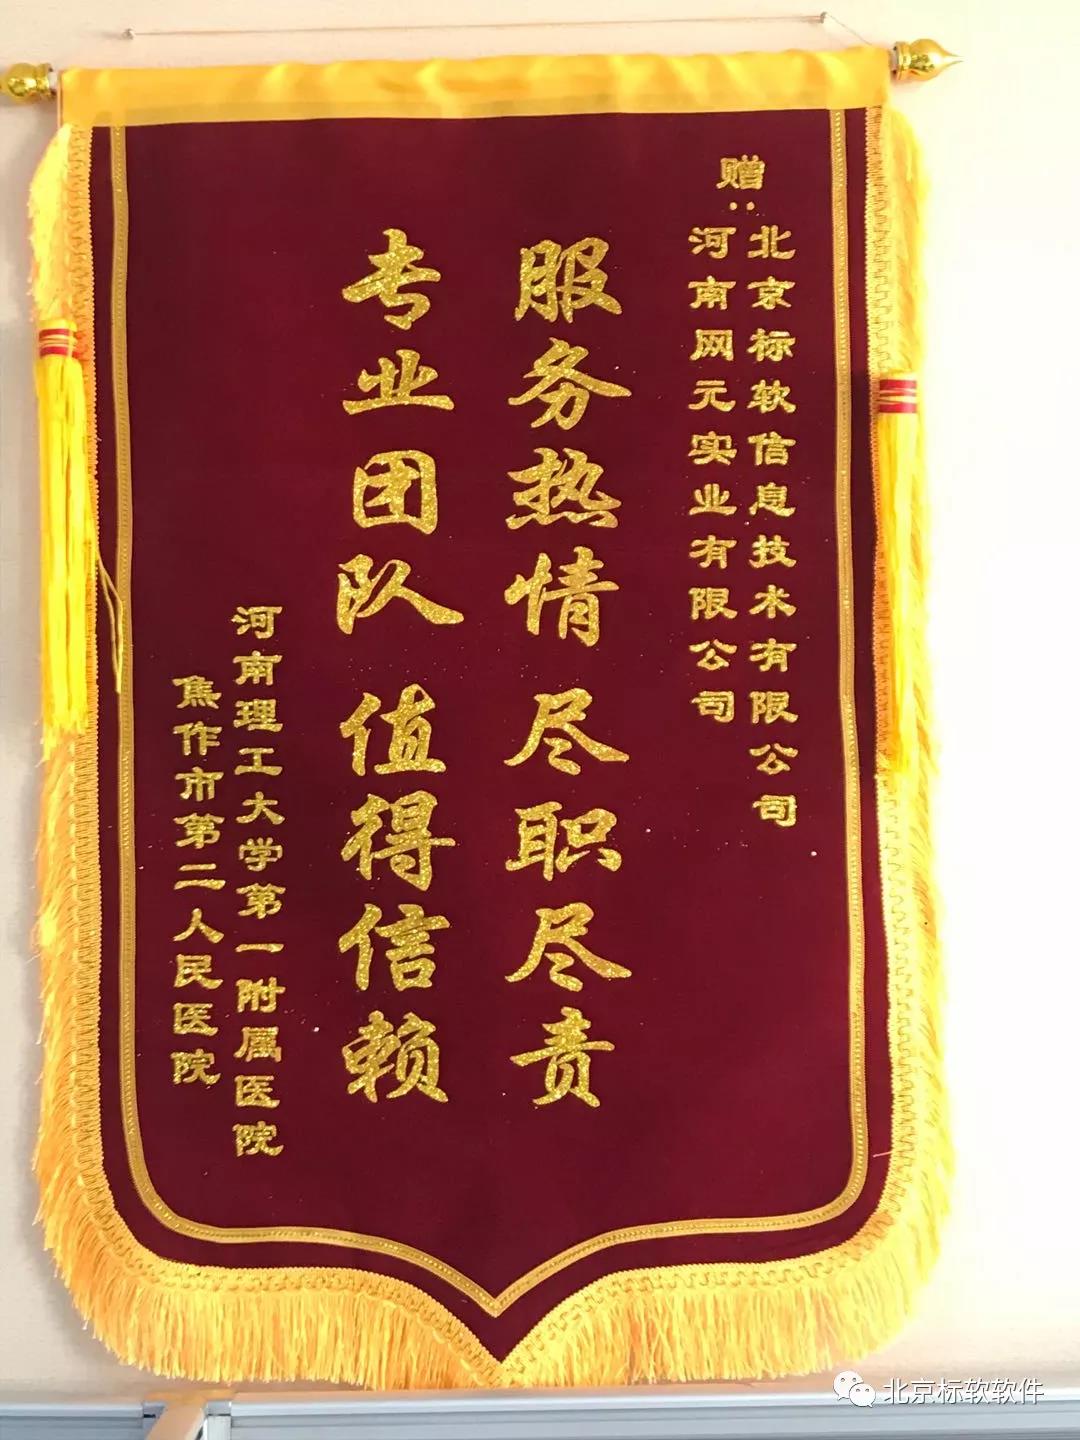 赠：
北京标软信息技术有限公司
河南网元实业有限公司
服务热情 尽职尽责
专业团队 值得信赖
河南理工大学第一附属医院
焦作市第二人民医院
北京标软软件